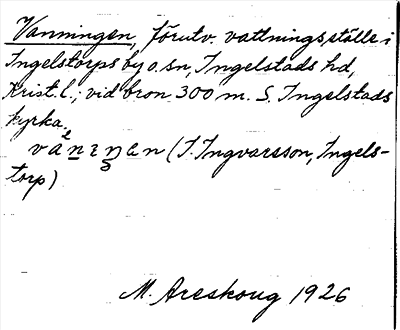 Vanningen, förutv. vattningsställe i
Ingelstorps by o. sn, Ingelstads hd,
Krist. l.; vid bron 300 m. S. Ingelstads
kyrka.
(J. Ingvarsson, Ingels-
torp)
M. Areskoug 1926